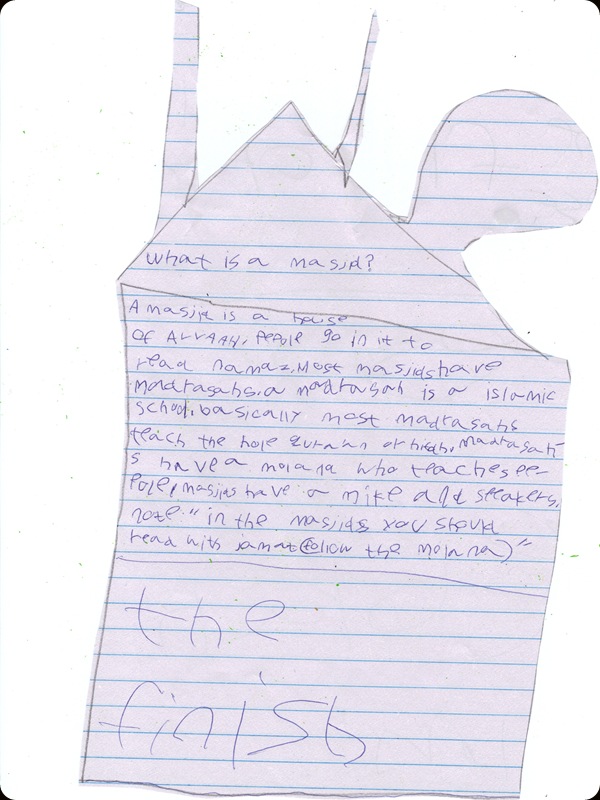 What is a masjid?
A masjid is a house
of ALLAAH. People go in it to
read namaz. Most masjids have
madrasahs. a madrasah is a islamic
school. basically most madrasahs
teach the hole quran or hifdh. madrasah
s have a molana who teaches pe-
pole, masjids have a mike and speakers.
note:" in the masjids you should
read with jamat (follow the molana)"
the
finish